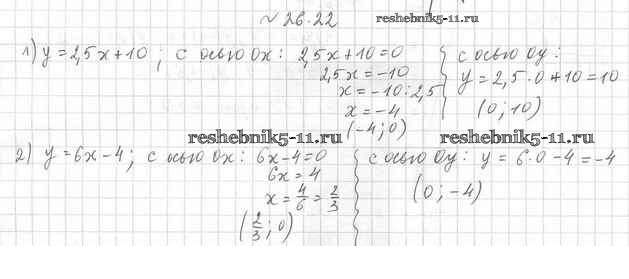 № 26.22
reshebnik5-11.ru
1) y = 2,5x + 10 ; с осью Ox: 2,5x + 10 = 0
2,5x = -10
x = -10 : 2,5
x = -4
(-4; 0)
с осью Oy:
y = 2,5 · 0 + 10 = 10
(0; 10)
reshebnik5-11.ru
reshebnik5-11.ru
2) y = 6x - 4; с осью Ox: 6x - 4 = 0
6x = 4
x = 4/6 = 2/3
(2/3; 0)
с осью Oy: y = 6 · 0 - 4 = -4
(0; -4)